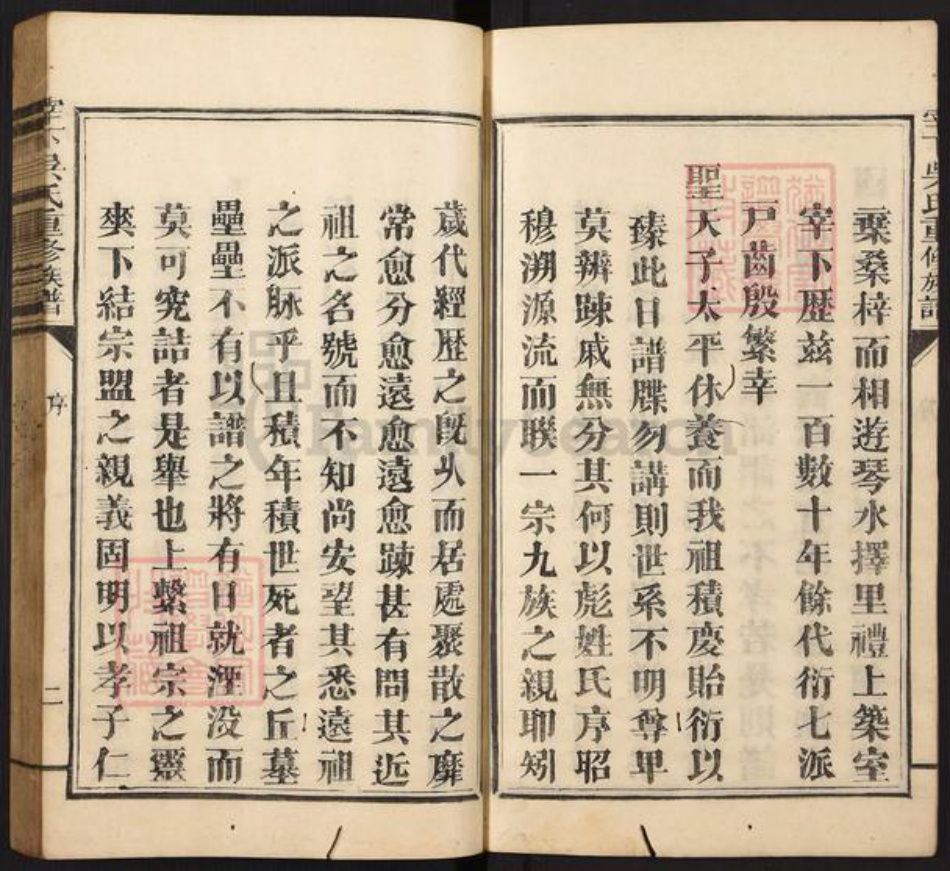 棄桑梓而相遊琴水擇里禮上築室
宰下歷兹一百數十年餘代衍七派
戸齒殷繁幸
聖天子太平休養而我祖積慶貽衍以
臻此日譜牒勿講則世系不明尊卑
莫辨踈戚無分其何以彪姓氏序昭
穆溯源流而聯一宗九族之親耶矧
歲代經歷之旣乆而居處聚散之靡
常愈分愈遠愈遠愈踈甚有問其近
祖之名號而不知尚安望其悉遠祖
之派脉乎且積年積世死者之丘墓
壘壘不有以譜之將有日就湮没而
莫可究詰者是舉也上繫祖宗之靈
爽下結宗盟之親義固明以孝子仁
吳氏重修族譜
序
二
FamilySearch